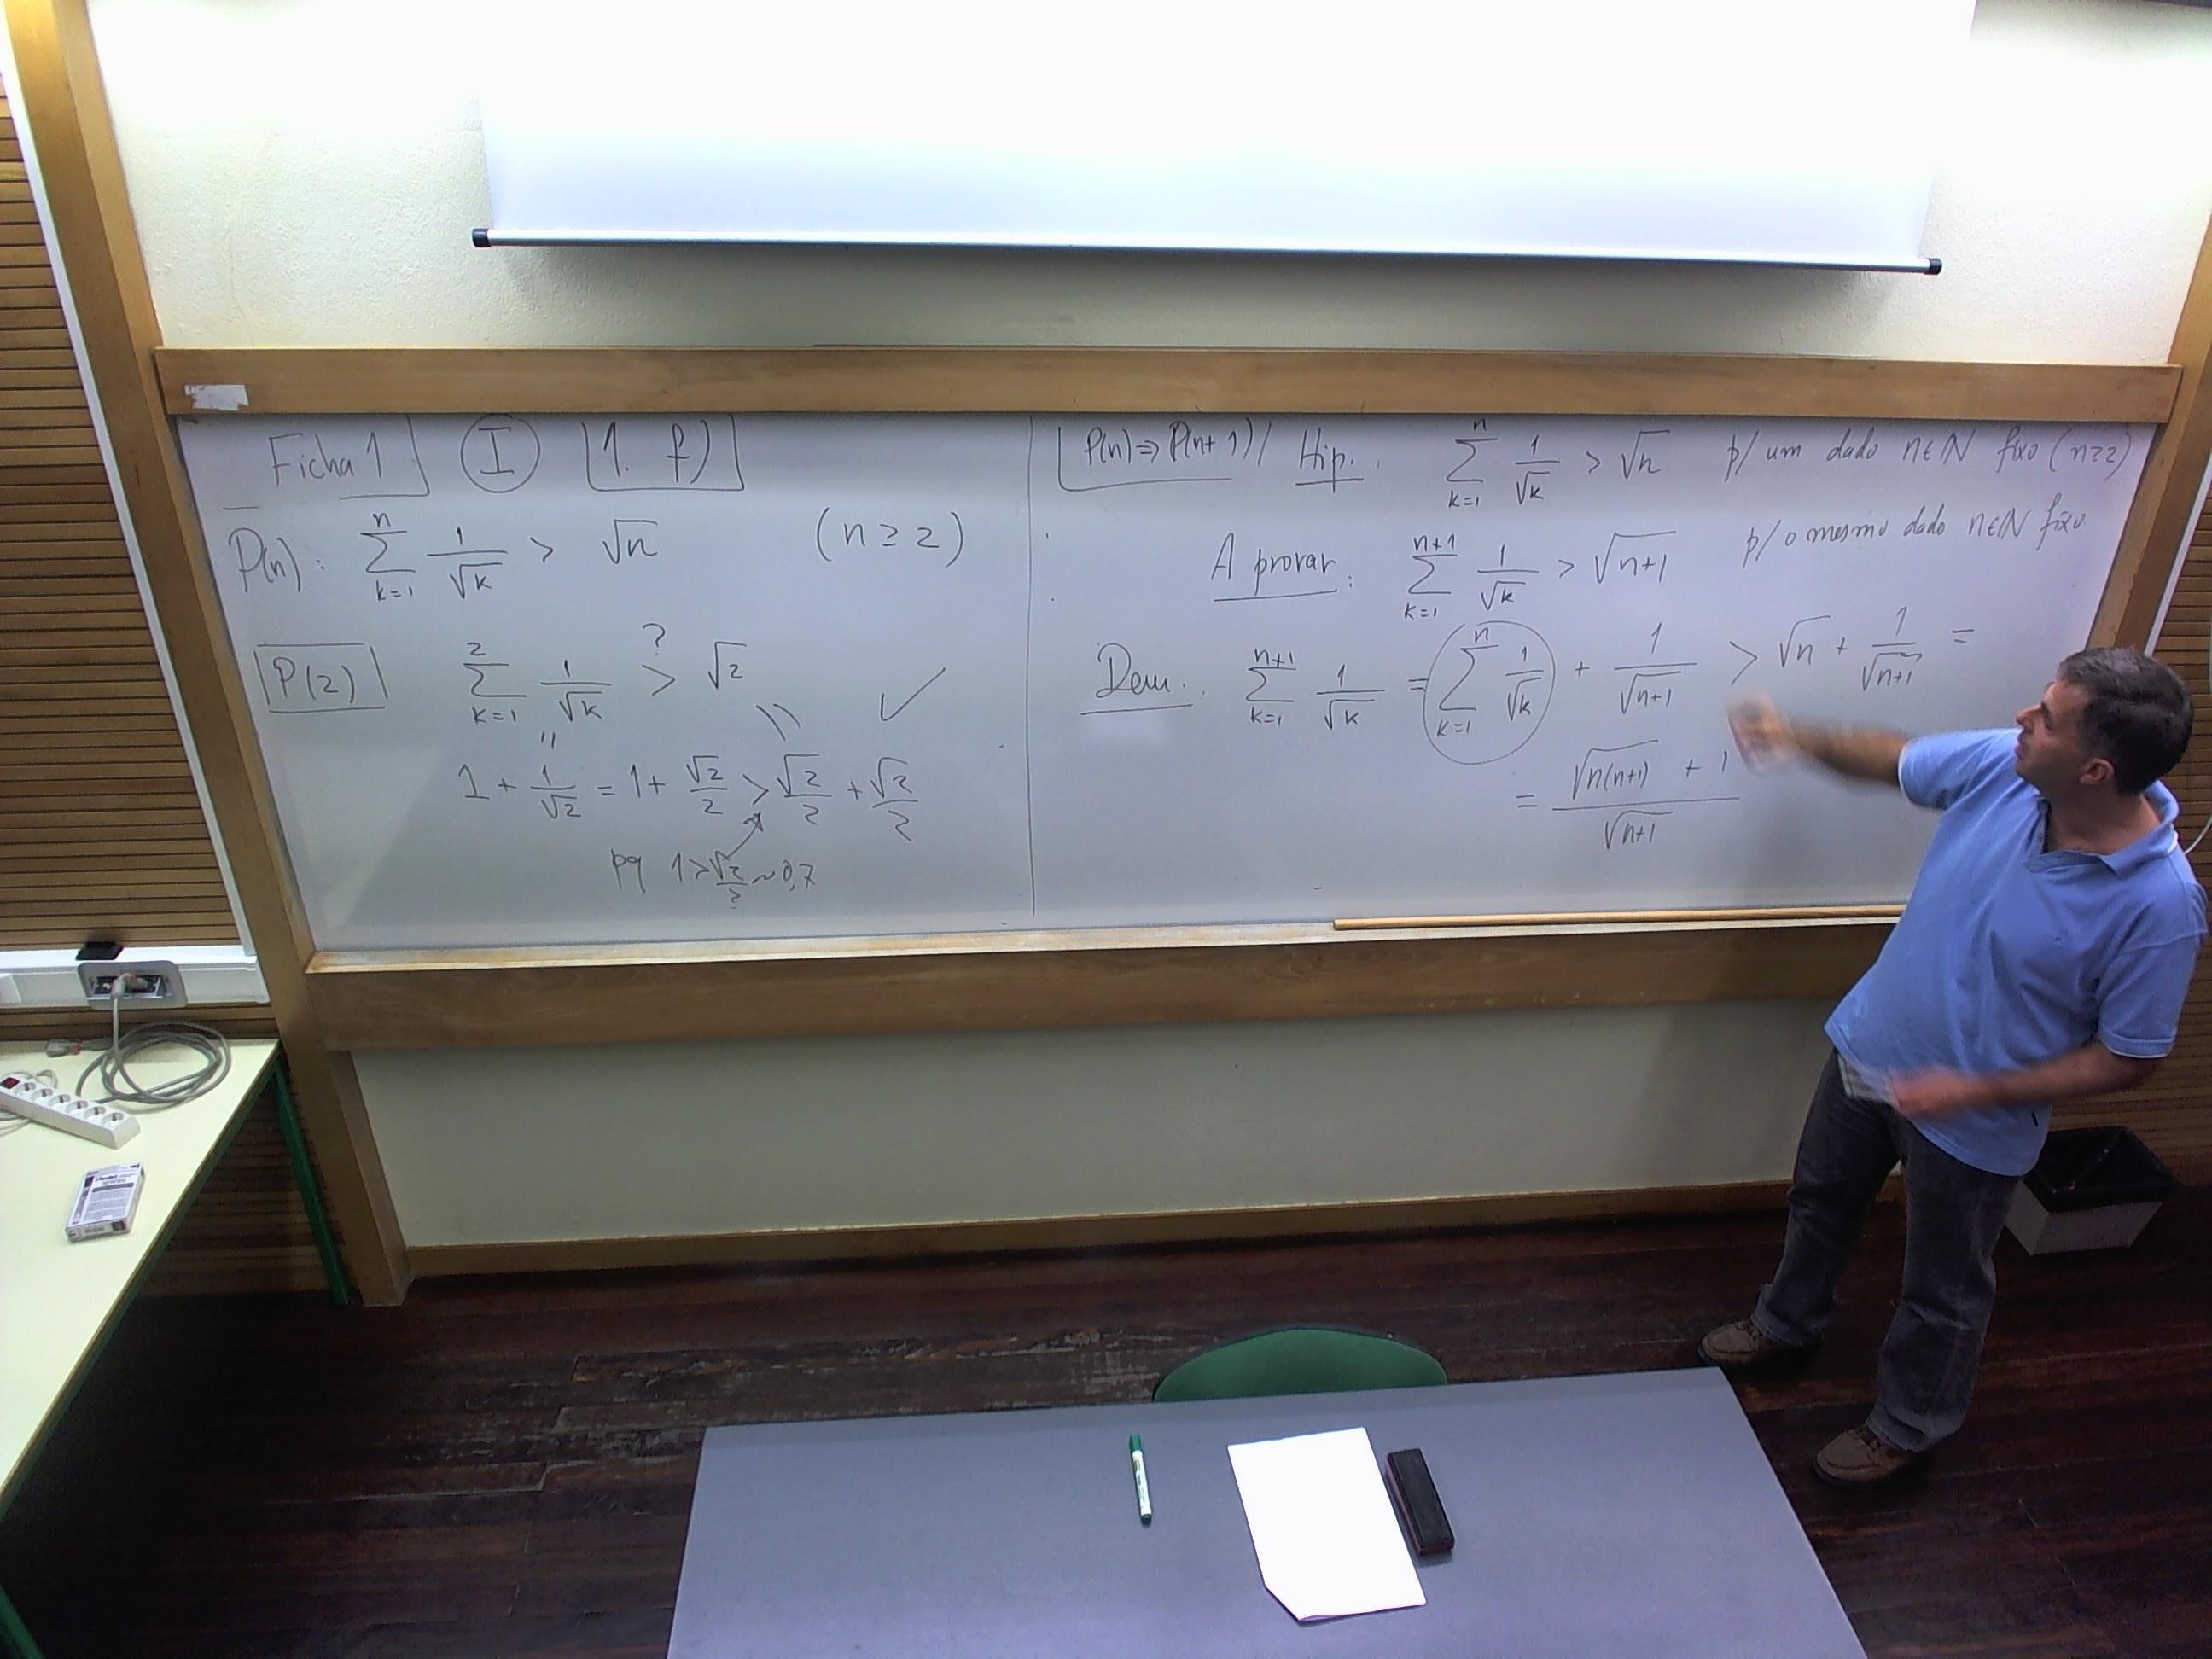 Ficha 1 I 1. f)
P(n): ∑_{k=1}^{n} 1/√k > √n (n ≥ 2)
P(2) ∑_{k=1}^{2} 1/√k >? √2 ✓
1 + 1/√2 = 1 + √2/2 > √2/2 + √2/2
pq 1 > √2/2 ~ 0,7
P(n) ⇒ P(n+1) / Hip.: ∑_{k=1}^{n} 1/√k > √n p/ um dado n∈ℕ fixo (n≥2)
A provar: ∑_{k=1}^{n+1} 1/√k > √(n+1) p/ o mesmo dado n∈ℕ fixo
Dem.: ∑_{k=1}^{n+1} 1/√k = ∑_{k=1}^{n} 1/√k + 1/√(n+1) > √n + 1/√(n+1) =
= (√(n(n+1)) + 1)/√(n+1)